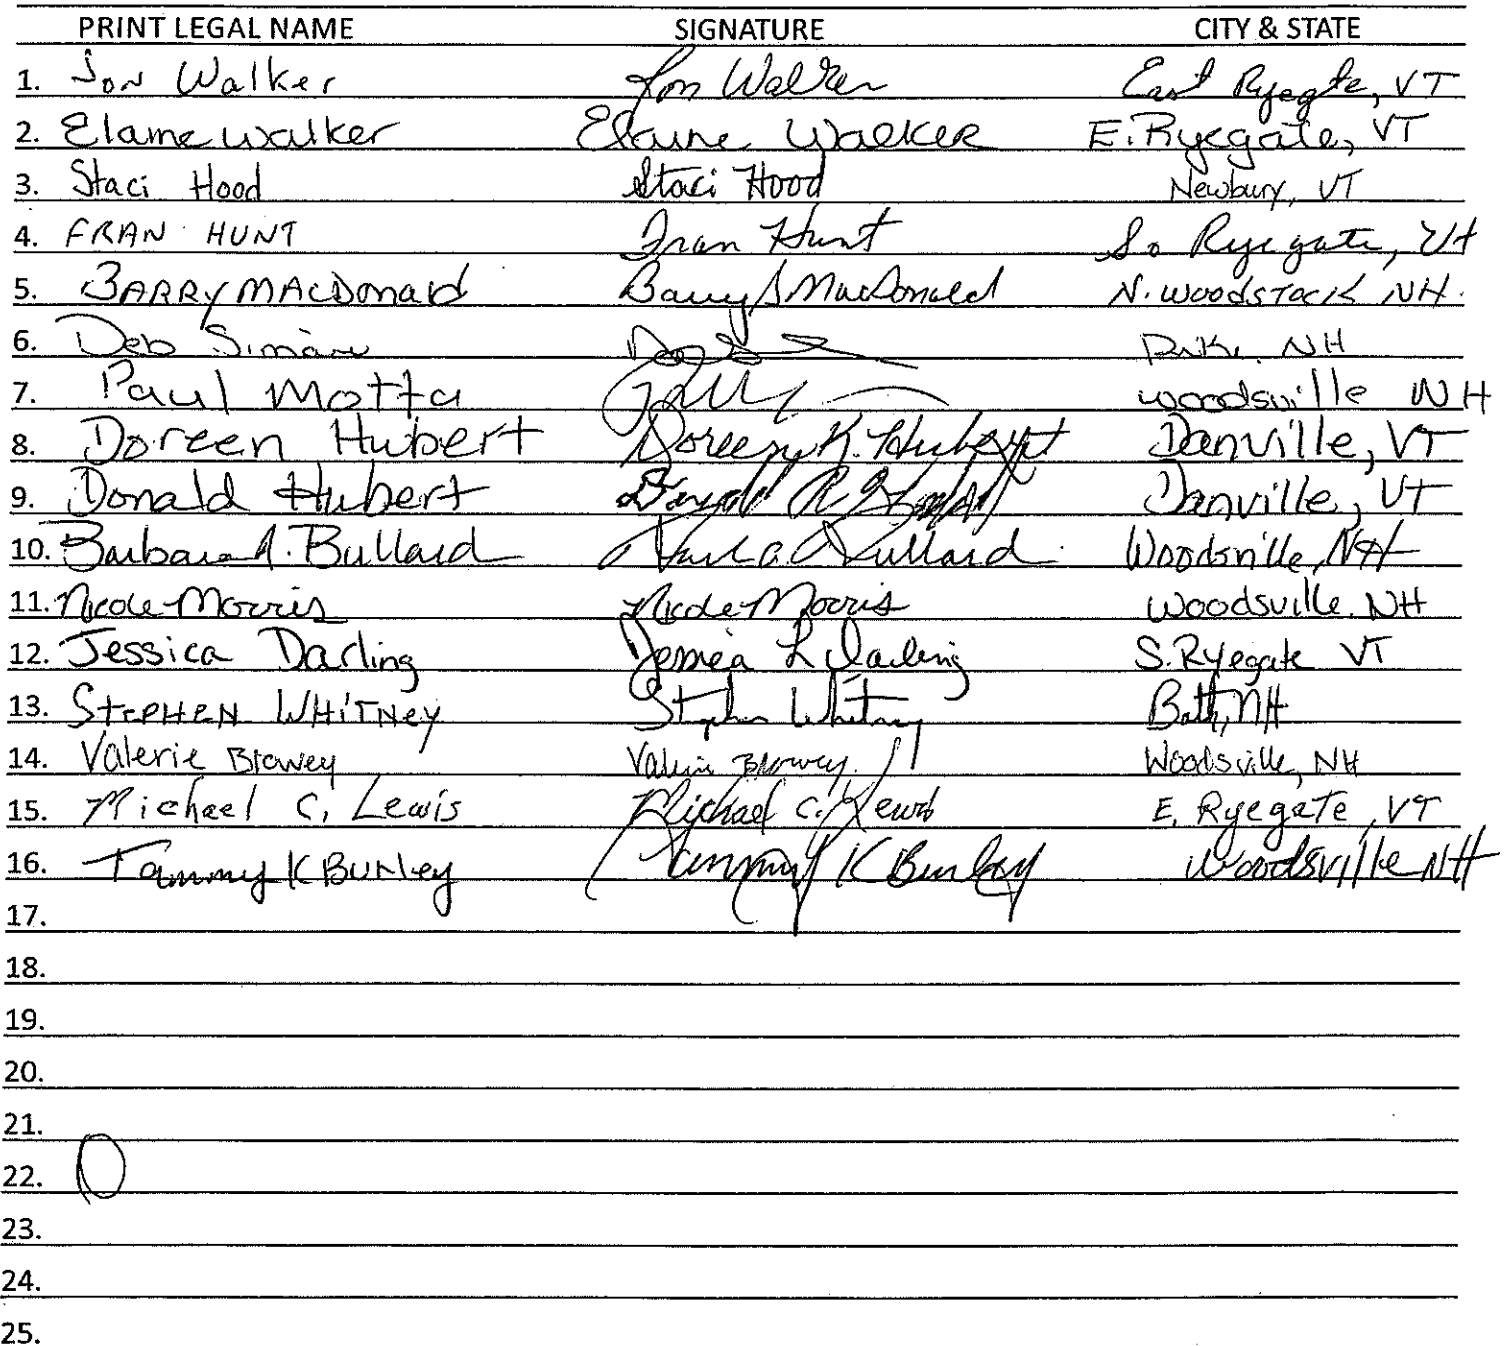 PRINT LEGAL NAME SIGNATURE CITY & STATE
1. Jon Walker Jon Walker East Ryegate, VT
2. Elaine Walker Elaine Walker E. Ryegate, VT
3. Staci Hood Staci Hood Newbury, VT
4. FRAN HUNT Fran Hunt So Ryegate, Vt
5. BARRY MACDonald Barry S MacDonald N. WOODSTOCK NH.
6. Deb NH
7. Paul Motta woodsville NH
8. Doreen Hubert Doreen K. Hubert Danville, VT
9. Donald Hubert Donald R Hubert Danville, VT
10. Barbara A. Bullard Bullard Woodsville, NH
11. Nicole Morris Nicole Morris Woodsville, NH
12. Jessica Darling Jessica L Darling S. Ryegate VT
13. STEPHEN WHITNEY Stephen Whitney Bath, NH
14. Valerie Brawey Valerie Woodsville, NH
15. Michael C. Lewis Michael C. Lewis E. Ryegate, VT
16. Tammy K Burley Tammy K Burley Woodsville NH
17.
18.
19.
20.
21.
22.
23.
24.
25.